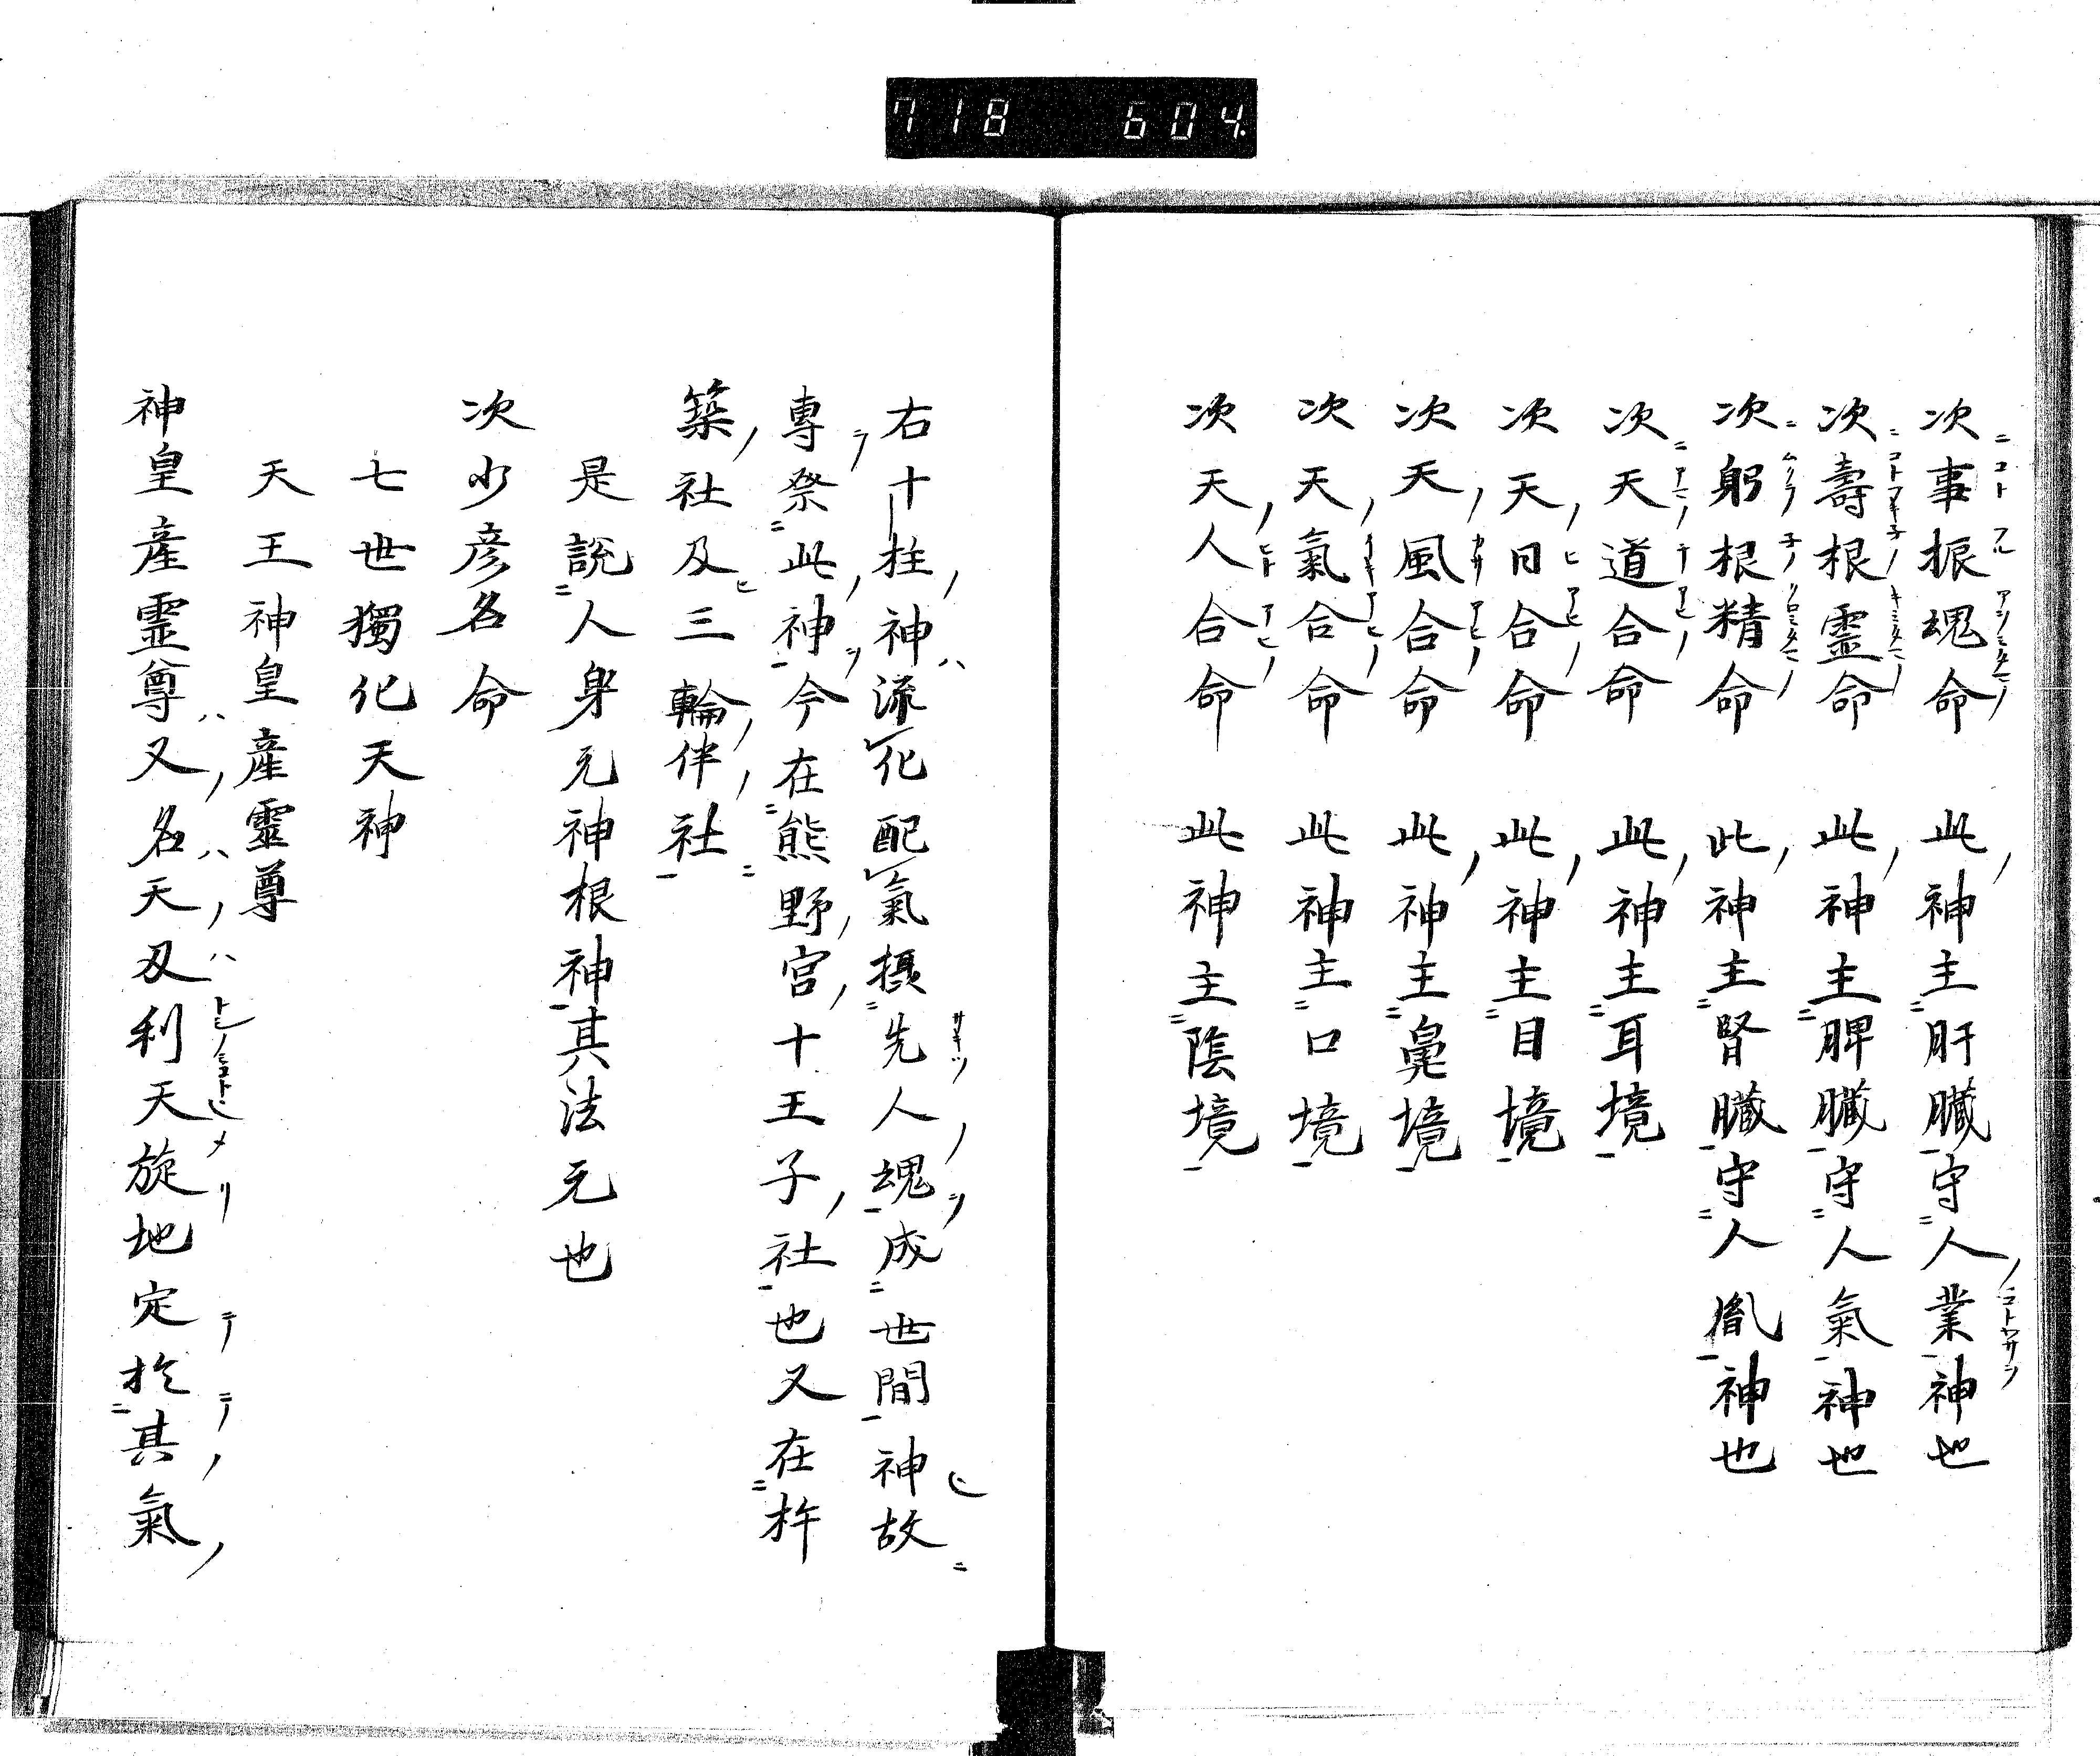 718 604.
次事振魂命 此神主肝臓守人業神也
次壽根霊命 此神主脾臓守人氣神也
次躬根精命 此神主腎臓守人胤神也
次天道合命 此神主耳境
次天日合命 此神主目境
次天風合命 此神主鼻境
次天氣合命 此神主口境
次天人合命 此神主陰境
右十柱神流化配氣摂先人魂成世間神故
專祭此神今在熊野宮十王子社也又在杵
築社及三輪伴社
是説人身元神根神其法元也
次少彦名命
七世獨化天神
天王神皇産霊尊
神皇産霊尊又名天及利天旋地定於其氣